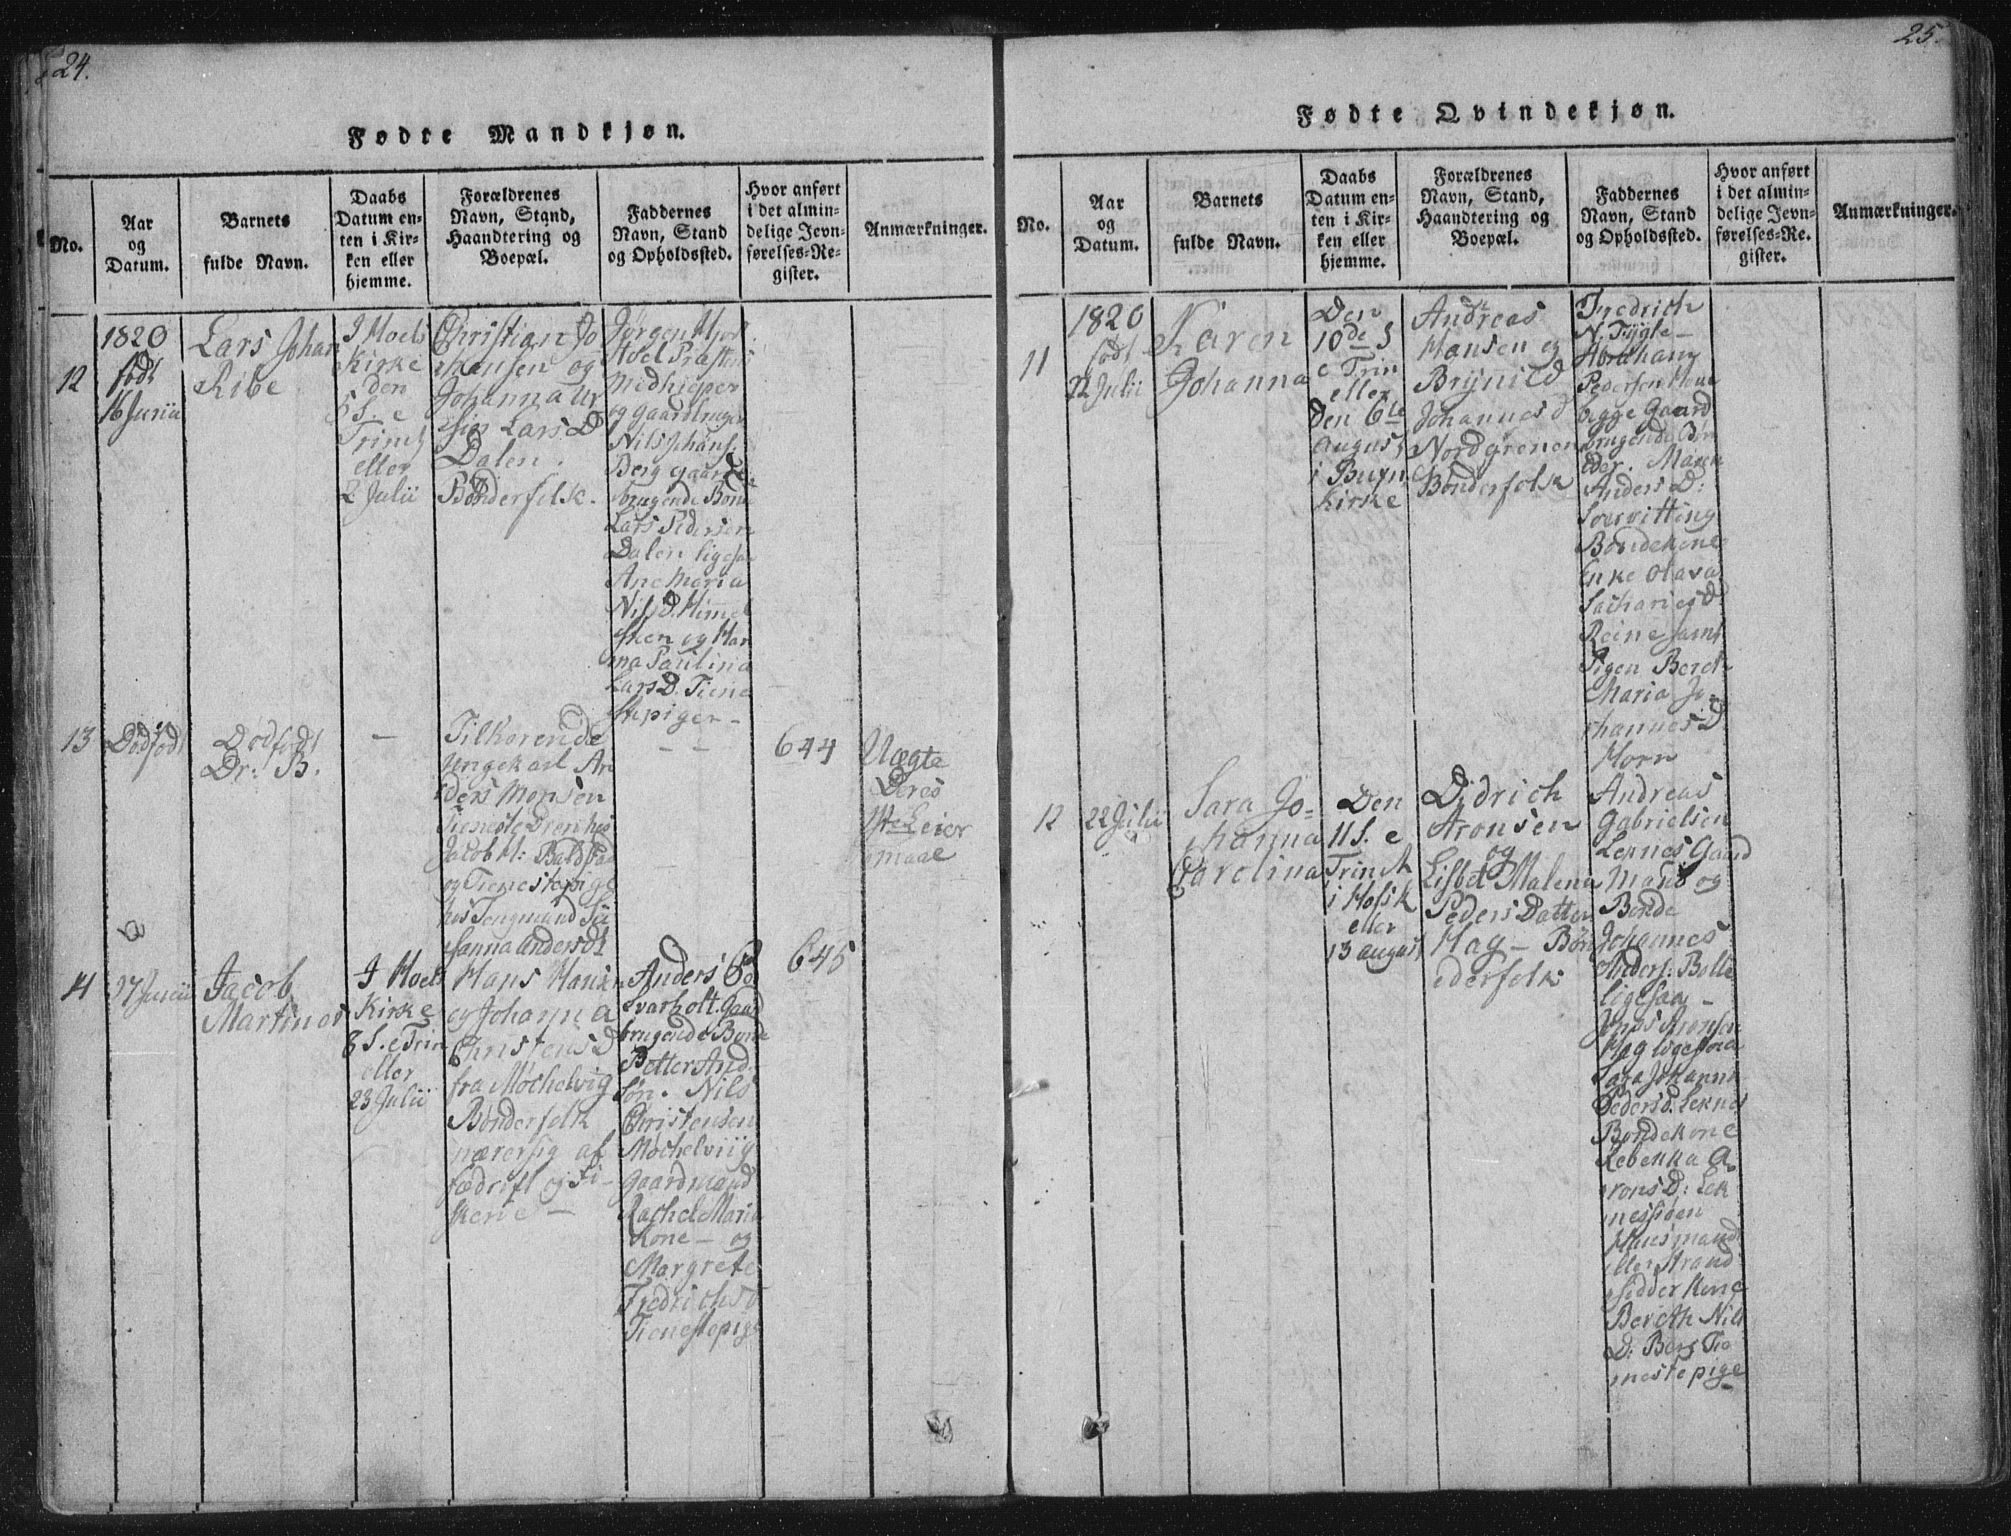 24.
Fødte Mandkjøn.
No.
Aar
og
Datum.
Barnets
fulde Navn.
Daabs
Datum en-
ten i Kir-
ken eller
hjemme.
Forældrenes
Navn, Stand,
Haandtering og
Boepæl.
Faddernes
Navn, Stand
og Opholdssted.
Hvor anført
i det almin-
delige Jevn-
førelses-Re-
gister.
Anmærkninger.
12
1820
født
16 Junii
Lars Johan
Ribe
I Hoels
Kirke
den
5 S. e
Trint
eller
2 Julii
Christian Jo
hansen og
Johanna
Lars D
Dalen.
Bønderfolk.
Jørgen
Hoel Præstens
Medhielper
og Gaardbruger
Nils Johans.
Berg gaard
brugende Bonde
Lars Pedersen
Dalen ligesaa
Ane Maria
Nils D. Himel
sten og Han
na Paulina
Lars D. Tiene
stepiger -
13
Dødfødt
Dødfødt
Dr: B.
-
Tilkorende
Ungekarl An
ders Monsen
Tieneste Dreng hos
Jacob H:
og Tienestepige
hos Su
sanna Anders D
- -
644
Uægte
Deres
1te Leier
maal
14
27 Junii
Jacob
Martinus
I Hoels
Kirke
8 S. e Trin
eller
23 Julii
Hans Hansen
og Johanna
Christens D
fra Mochelvig
Bønderfolk
nærersig af
Fædrift og Fi-
skerie -
Anders
Svarholt. Gaard
brugende Bonde
Petter And
søn. Nils
Christensen
Mochelviig
Gaardmand
Rachel Maria
Kone - og
Margrete
Fredrichs D
Tienestepige
645
25.
Fødte Qvindekjøn.
No.
Aar
og
Datum.
Barnets
fulde Navn.
Daabs
Datum en-
ten i Kir-
ken eller
hjemme.
Forældrenes
Navn, Stand,
Haandtering og
Boepæl.
Faddernes
Navn, Stand
og Opholdssted.
Hvor anført
i det almin-
delige Jevn-
førelses-Re-
gister.
Anmærkninger.
11
1820
født
22 Julii
Karen
Johanna
Den
10de S
e Trin
eller
den 6te
August
i Buxn
Kirke
Andreas
Hansen og
Brynild
Johannes D
Nordgrenen
Bønderfolk
Fredrich
N. Tygle -
Abraham
Pedersen
begge Gaard
brugende Bøn
der. Maren
Anders D:
Bondekone
Enke Olava
Sacharies D
Reine samt
Pigen Bereth
Maria Jo-
hannes D
Horn
12
22 Julii
Sara Jo-
hanna
Carolina
Den
11 S. e
Trinit
i Hofs K
eller
13 August
Didrich
Aronsen
og
Lisbet Malena
Peders Datter
Hag - Bøn
derfolk
Andreas
Gabrielsen
Leknes Gaard
mand og
Bonde
Johannes
Anders: Bolle
ligesaa -
Jens Aronsen
Hag ligesaa
Sara Johanna
Peders D: Leknes
Bondekone
Rebekka A
rons D: Lek
nessiøen
Huusmand
eller Strand
sidder Kone
Bereth Nils
D: Berg Tie
nestepige